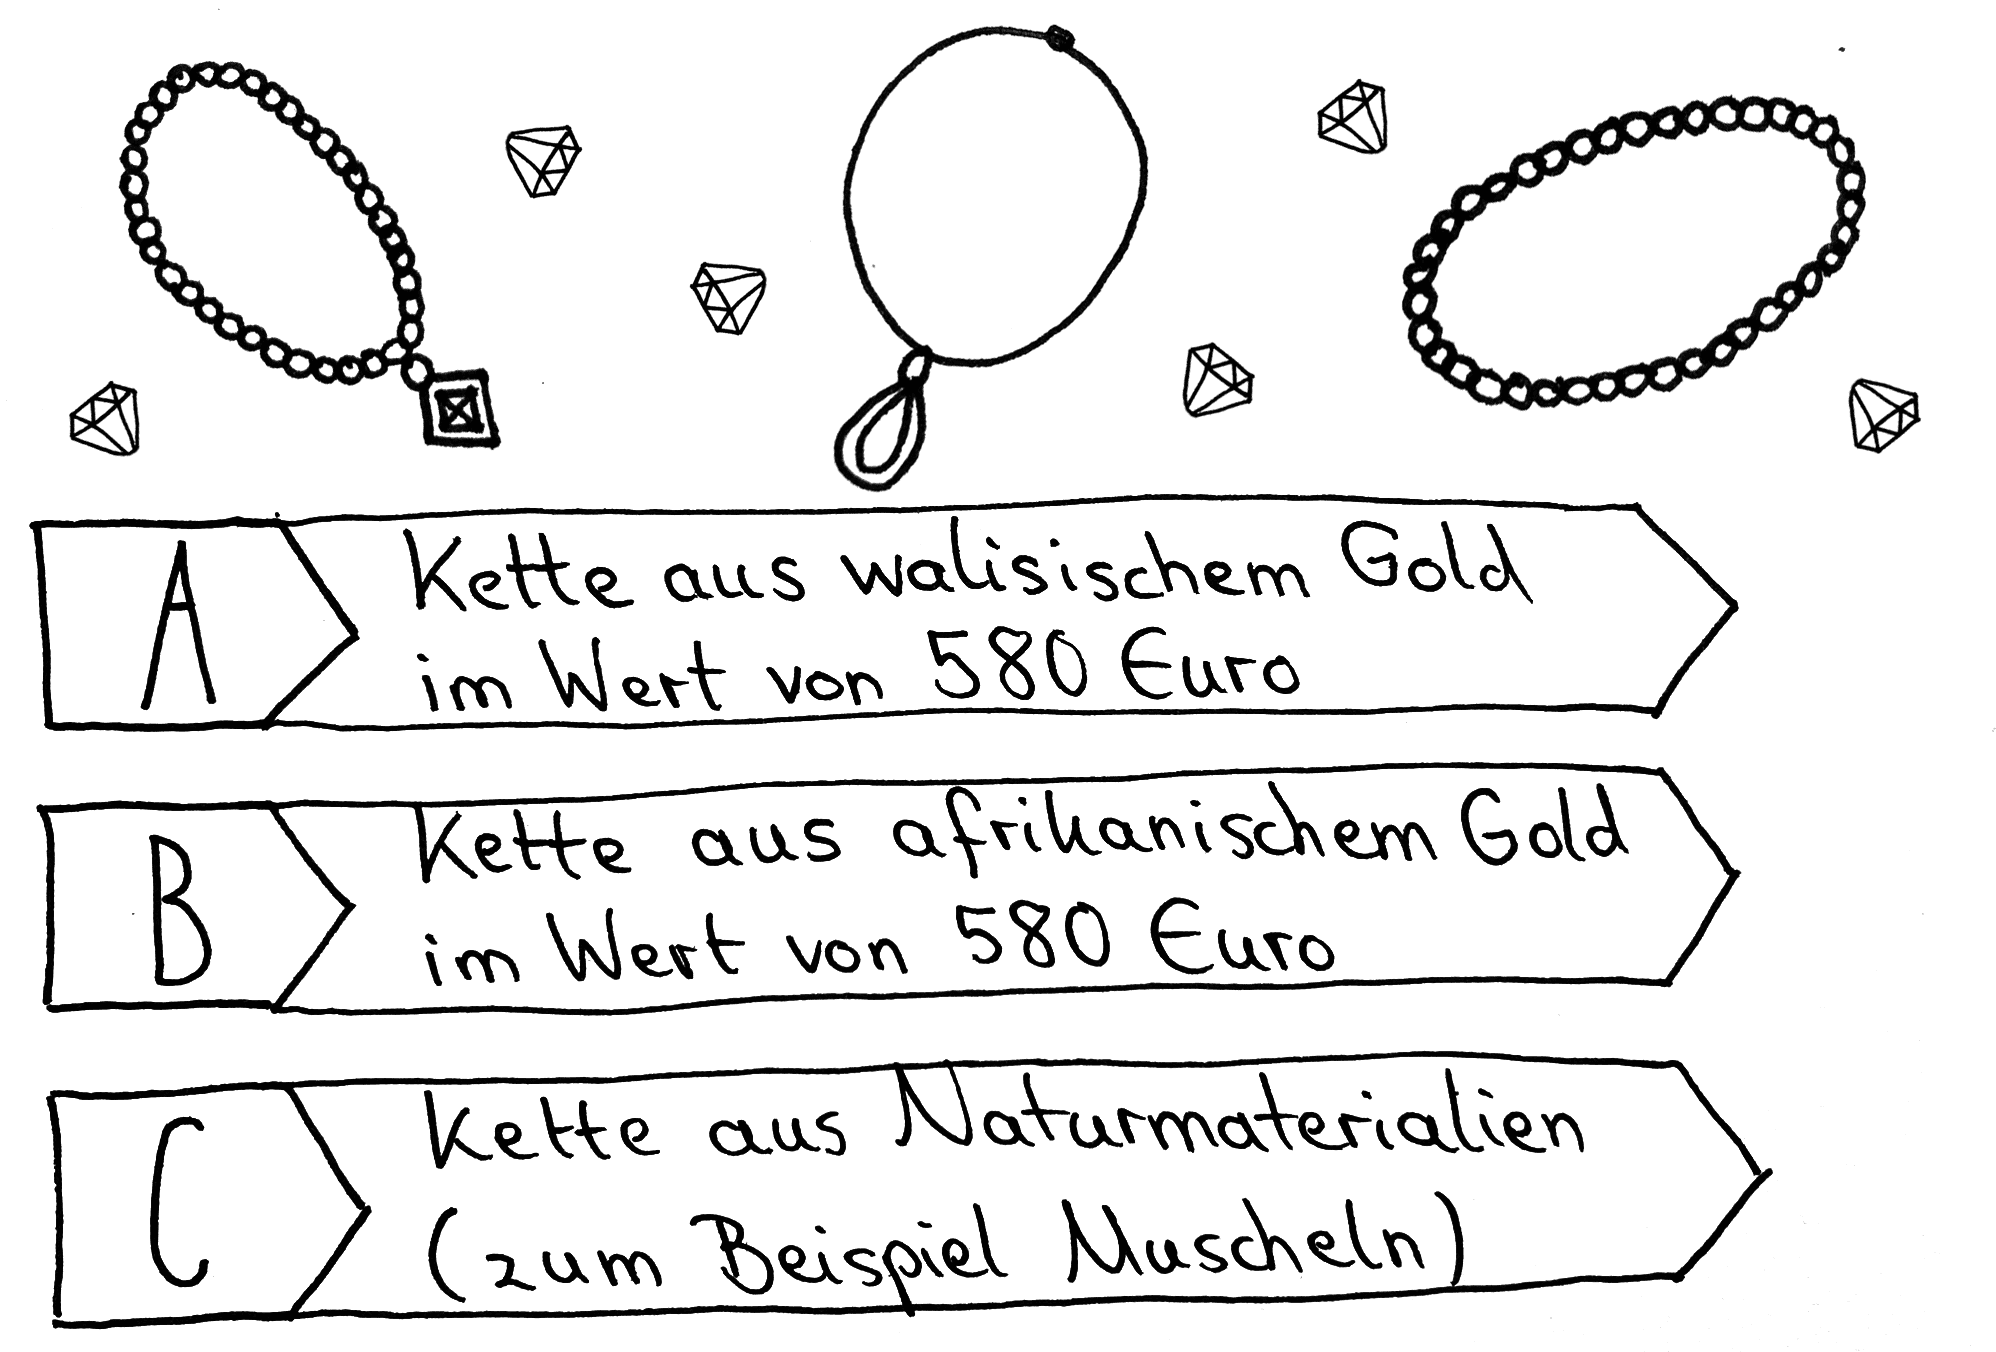 A
Kette aus walisischem Gold
im Wert von 580 Euro
B
Kette aus afrikanischem Gold
im Wert von 580 Euro
C
Kette aus Naturmaterialien
(zum Beispiel Muscheln)